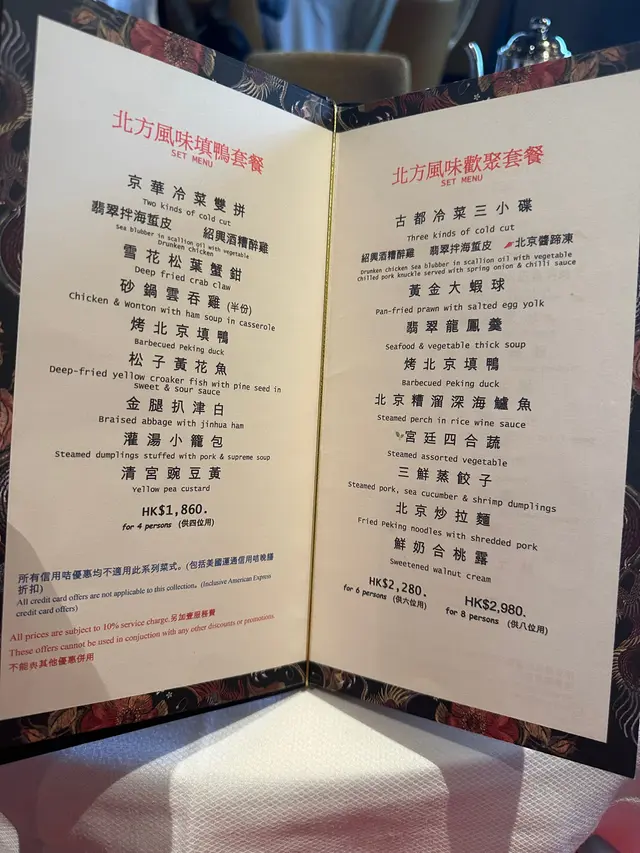 北方風味填鴨套餐
SET MENU
京華冷菜雙拼
Two kinds of cold cut
翡翠拌海蜇皮 紹興酒糟醉雞
Sea blubber in scallion oil with vegetable
Drunken chicken
雪花松葉蟹鉗
Deep fried crab claw
砂鍋雲吞雞 (半份)
Chicken & Wonton with ham soup in casserole
烤北京填鴨
Barbecued Peking duck
松子黃花魚
Deep-fried yellow croaker fish with pine seed in
sweet & sour sauce
金腿扒津白
Braised abbage with jinhua ham
灌湯小籠包
Steamed dumplings stuffed with pork & supreme soup
清宮豌豆黃
Yellow pea custard
HK$1,860.
for 4 persons (供四位用)
所有信用咭優惠均不適用此系列菜式。(包括美國運通信用咭晚膳
折扣)
All credit card offers are not applicable to this collection. (Inclusive American Express
credit card offers)
All prices are subject to 10% service charge.另加壹服務費
These offers cannot be used in conjuction with any other discounts or promotions
不能與其他優惠併用
北方風味歡聚套餐
SET MENU
古都冷菜三小碟
Three kinds of cold cut
紹興酒糟醉雞 翡翠拌海蜇皮 北京醬蹄凍
Drunken chicken Sea blubber in scallion oil with vegetable
Chilled pork knuckle served with spring onion & chilli sauce
黃金大蝦球
Pan-fried prawn with salted egg yolk
翡翠龍鳳羹
Seafood & vegetable thick soup
烤北京填鴨
Barbecued Peking duck
北京糟溜深海鱸魚
Steamed perch in rice wine sauce
宮廷四合蔬
Steamed assorted vegetable
三鮮蒸餃子
Steamed pork, sea cucumber & shrimp dumplings
北京炒拉麵
Fried Peking noodles with shredded pork
鮮奶合桃露
Sweetened walnut cream
HK$2,280. HK$2,980.
for 6 persons (供六位用) for 8 persons (供八位用)